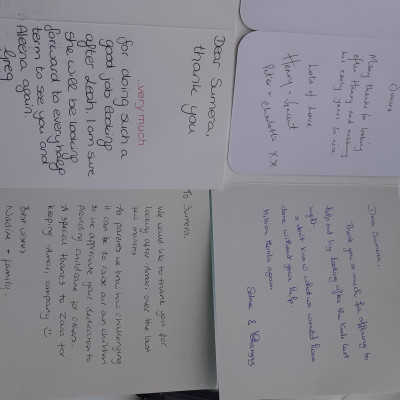 Dear Sumera,
thank you
..very much
for doing such a
good job looking
after Leah. I am sure
she will be looking
forward to everyday
term to see you and
Aleena again.
Greg
Sumera
Many thanks for looking
after Henry and making
his early years so nice
Lots of love
Henry, Vincent
Peter & Charlotte xx
To Sumera,
We would like to thank you for
looking after Amar over the last
few months.
As parents we know how challenging
it can be to raise our own children
so we appreciate your dedication to
providing childcare for others.
A special thanks to Zara for
keeping Amar, company
Best wishes
Nadine + family.
Dear Sumera,
Thank you so much for offering to
help out by looking after the kids last
night.
I don't know what we would have
done without your help.
Million thanks again
Selma &